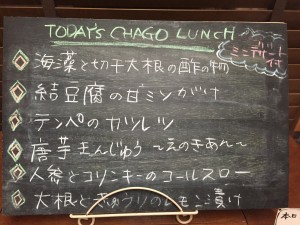 TODAY'S CHAGO LUNCH
ミニデザート付
海藻と切干大根の酢の物
結豆腐の甘ミソがけ
テンペのカツレツ
唐芋まんじゅう 〜えのきあん〜
人参とコリンキーのコールスロー
大根ときゅうりのレモン漬け